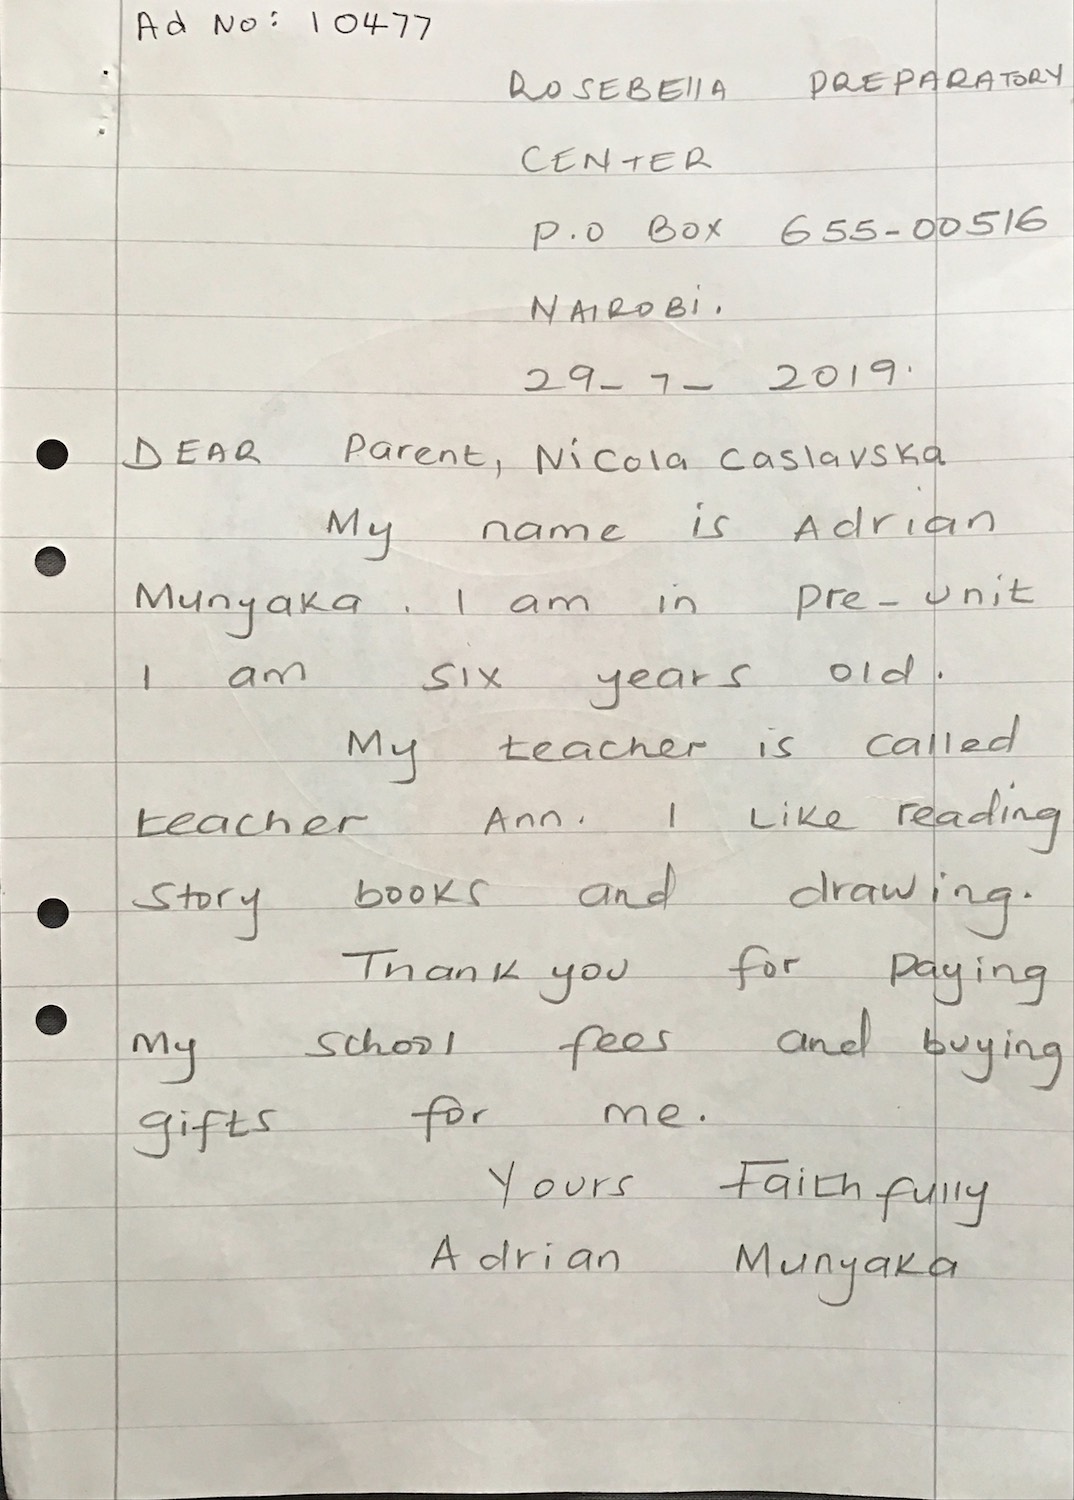 Ad No: 10477
ROSEBEllA PREPARATORY
CENTER
P.O BOX 655-00516
NAIROBi.
29-7-2019.
DEAR Parent, Nicola Caslavska
My name is Adrian
Munyaka. I am in pre-unit
I am six years old.
My teacher is called
teacher Ann. I Like reading
Story books and drawing.
Thank you for paying
My school fees and buying
gifts for me.
Yours Faithfully
Adrian Munyaka